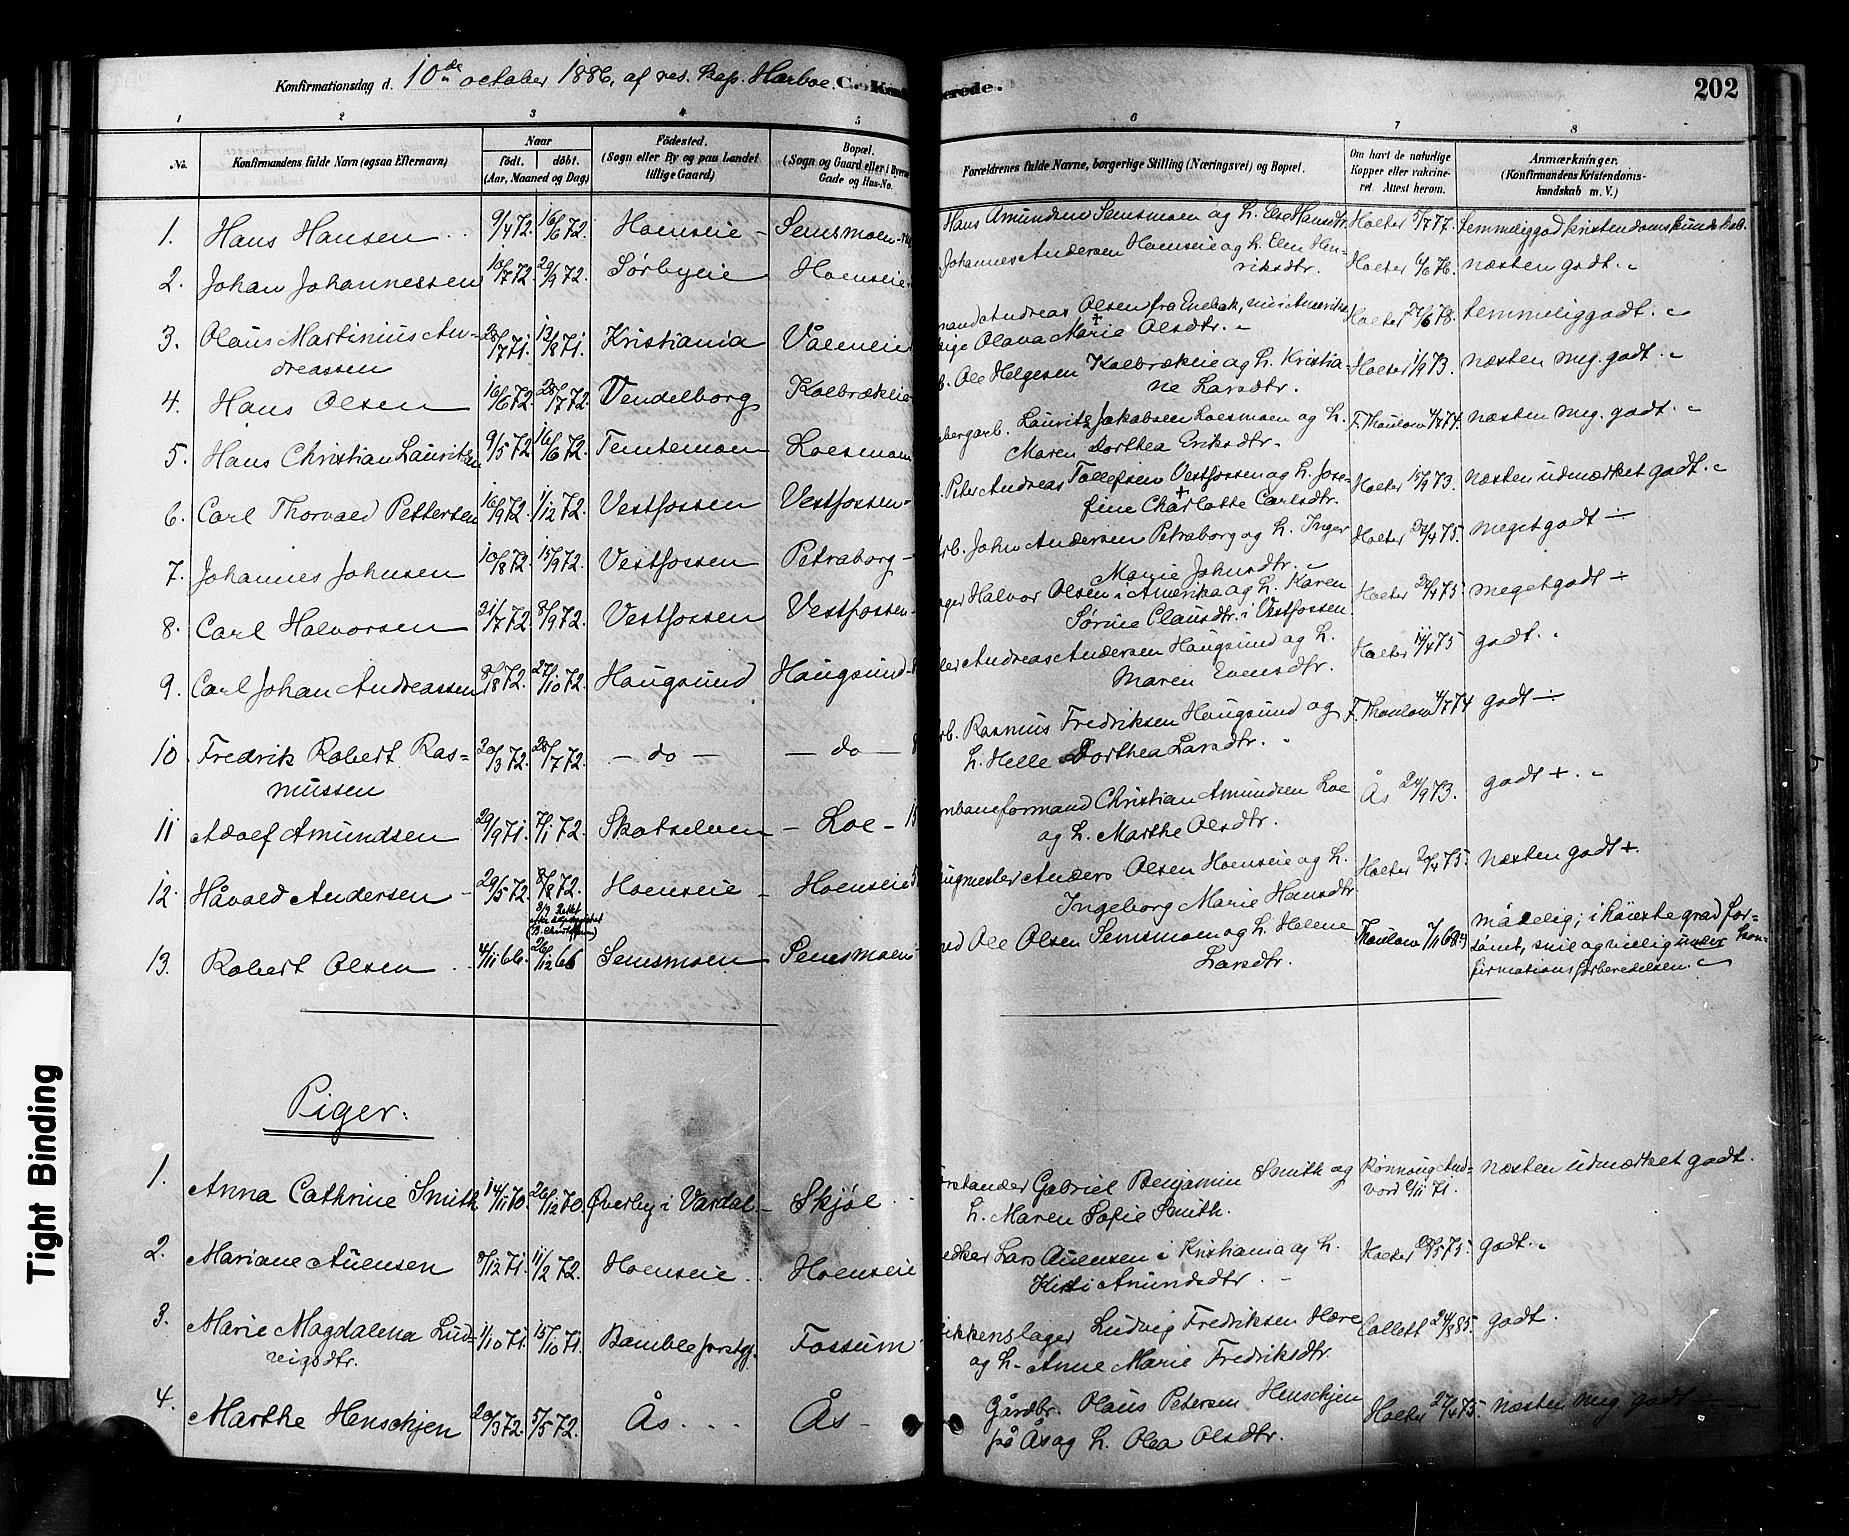 Konfirmationsdag d. 10de october 1886, af res. Kap. Harboe. C. Konf
erede.
202
1 2 3 4 5 6 7 8
No. Konfirmandens fulde Navn (ogsaa Efternavn) Naar født. døbt. (Aar, Maaned og Dag) Fødested. (Sogn eller By og paa Landet tillige Gaard) Bopæl. (Sogn og Gaard eller i Byerne Gade og Hus-No. Forældrenes fulde Navne, borgerlige Stilling (Næringsvei) og Bopæl. Om havt de naturlige Kopper eller vakcineret. Attest herom. Anmærkninger. (Konfirmandens Kristendomskundskab m. V.)
1. Hans Hansen 9/4 72. 16/6 72. Hoenseie - Semsmoen Hans Amundsen Semsmoen og h. Else Hansdtr. Holter 5/7 77. temmelig god kristendomskundskab.
2. Johan Johannessen 18/7 72. 29/9 72. Sørbyeie Hoenseie Johannes Andersen Hoenseie og h. Elen Hen-
riksdtr. Holter 6/6 76. næsten godt. "
3. Olaus Martinius An-
dreassen 28/7 71. 13/8 71. Kristiania Våleneie mand Andreas Olsen fra Enebak, nu i Amerika
ige Olava Marie Olsdtr. " Holter 24/6 78. temmelig godt. "
4. Hans Olsen 16/6 72. 28/7 72. Vendelborg Kolbrækeie Ole Helgesen Kolbrækeie og h. Kristia-
ne Larsdtr. Holter 1/9 73. næsten meg. godt. "
5. Hans Christian Lauritzen 9/5 72. 16/6 72. Temtemoen Loesmoen bergarb. Lauritz Jakobsen Loesmoen og h.
Maren Dorthea Eriksdtr. F. Thaulow 4/7 74. næsten meg. godt. "
6. Carl Thorvald Pettersen 16/9 72. 1/12 72. Vestfossen Vestfossen Peter Andreas Tollefsen Vestfossen og h. Jose-
fine Charlotte Carlsdtr. Holter 15/9 73. næsten udmærket godt. "
7. Johannes Johnsen 10/8 72. 15/9 72. Vestfossen Petraborg - rb. John Andersen Petraborg og h. Inger
Marie Johnsdtr. Holter 24/4 75. meget godt ÷
8. Carl Halvorsen 21/7 72. 8/9 72. Vestfossen Vestfossen ager Halvor Olsen i Amerika og h. Karen
Sørine Clausdtr. i Vestfossen Holter 24/4 75. meget godt +
9. Carl Johan Andreassen 8/8 72. 27/10 72. Hougsund Hougsund ler Andreas Andersen Hougsund og h.
Maren Evensdtr. Holter 14/4 75 godt. "
10. Fredrik Robert Ras-
mussen 20/3 72. 28/7 72. - do - - do - rb. Rasmus Fredriksen Hougsund og
h. Helle Dorthea Larsdtr. " F. Thaulow 4/7 74 godt ÷
11 Adolf Amundsen 29/9 71. 7/1 72. Skotselven - Loe - nbaneformand Christian Amundsen Loe
og h. Marthe Olsdtr. Ås 24/9 73. godt +. "
12. Håvald Andersen - 29/5 72. 8/8 72. Hoenseie - Hoenseie ugmester Anders Olsen Hoenseie og h.
Ingeborg Marie Hansdtr Holter 20/4 75. næsten godt +.
13. Robert Olsen 4/11 66. 26/12 66 Semsmoen Semsmoen nd Ole Olsen Semsmoen og h. Helene
Larsdtr. Thaulow 7/11 68 mådelig; i høieste grad for-
sømt, snil og villig under kon-
firmationsforberedelsen. "
Piger.
1. Anna Cathrine Smith 14/11 70. 26/12 70. Øverby i Vardal - Skjøl rstander Gabriel Benjamin Smith og
h. Maren Sofie Smith. Rønnaug And-
vord 6/11 71. næsten udmærket godt.
2. Mariane Auensen 8/12 71. 11/2 72. Hoenseie Hoenseie edker Lars Auensen i Kristiania og h.
Kisti Amundsdtr. - Holter 28/5 75. godt. "
3. Marie Magdalena Lud-
vigsdtr. 1/10 71. 15/10 71. Bamble prstgj. Fossum ikkenslager Ludvig Fredriksen Hære
og h. Anne Marie Fredriksdtr. Collett 24/3 85. godt.
4. Marthe Henschjen 20/3 72. 5/5 72. Ås Ås - Gårdbr. Olaus Petersen Henschjen
på Ås og h. Olea Olsdtr. Holter 27/4 75. næsten meg. godt
Tight Binding